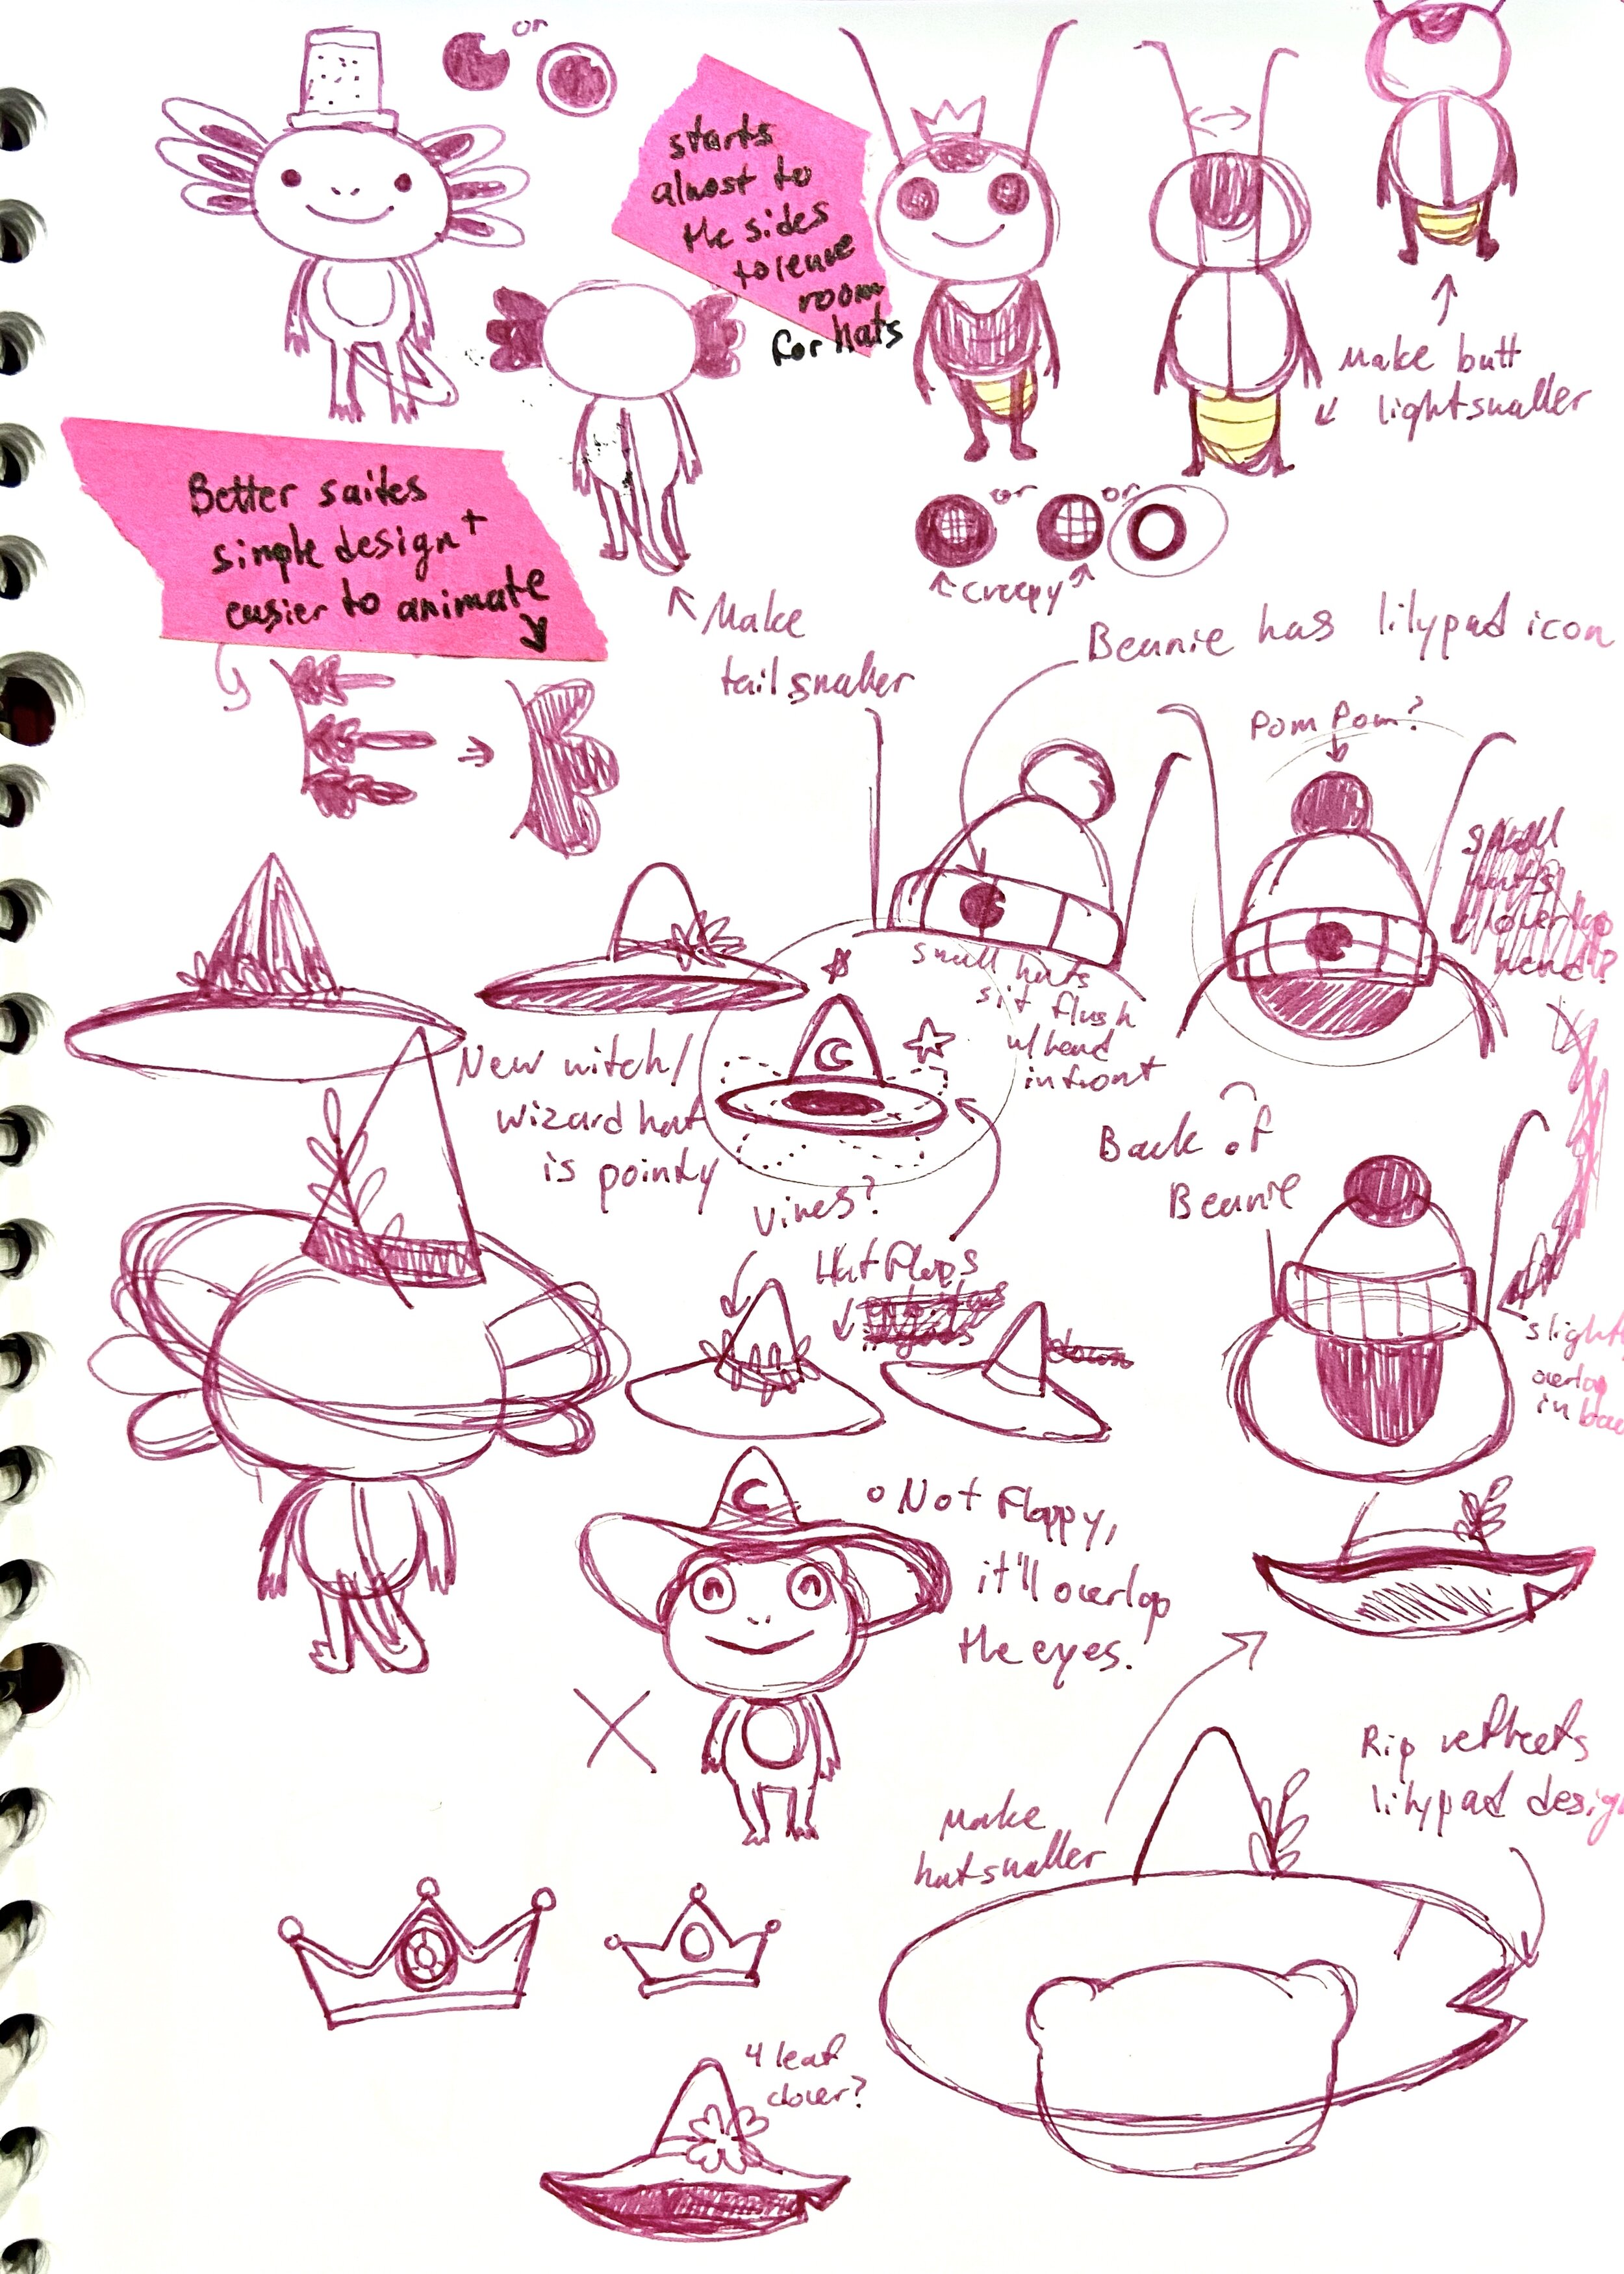 or
starts
almost to
the sides
to leave
room
for hats
Make butt
light smaller
Better suites
simple design +
easier to animate
or
or
creepy
Make
tail smaller
Beanie has lilypad icon
Pom Pom?
small
hats
overlap
head?
small hats
sit flush
w/ head
in front
New witch/
wizard hat
is pointy
Vines?
Back of
Beanie
Hat Flops
down
slight
overlap
in bac
o Not Floppy,
it'll overlap
the eyes.
Rip reflects
lilypad desig
Make
hat smaller
4 leaf
clover?